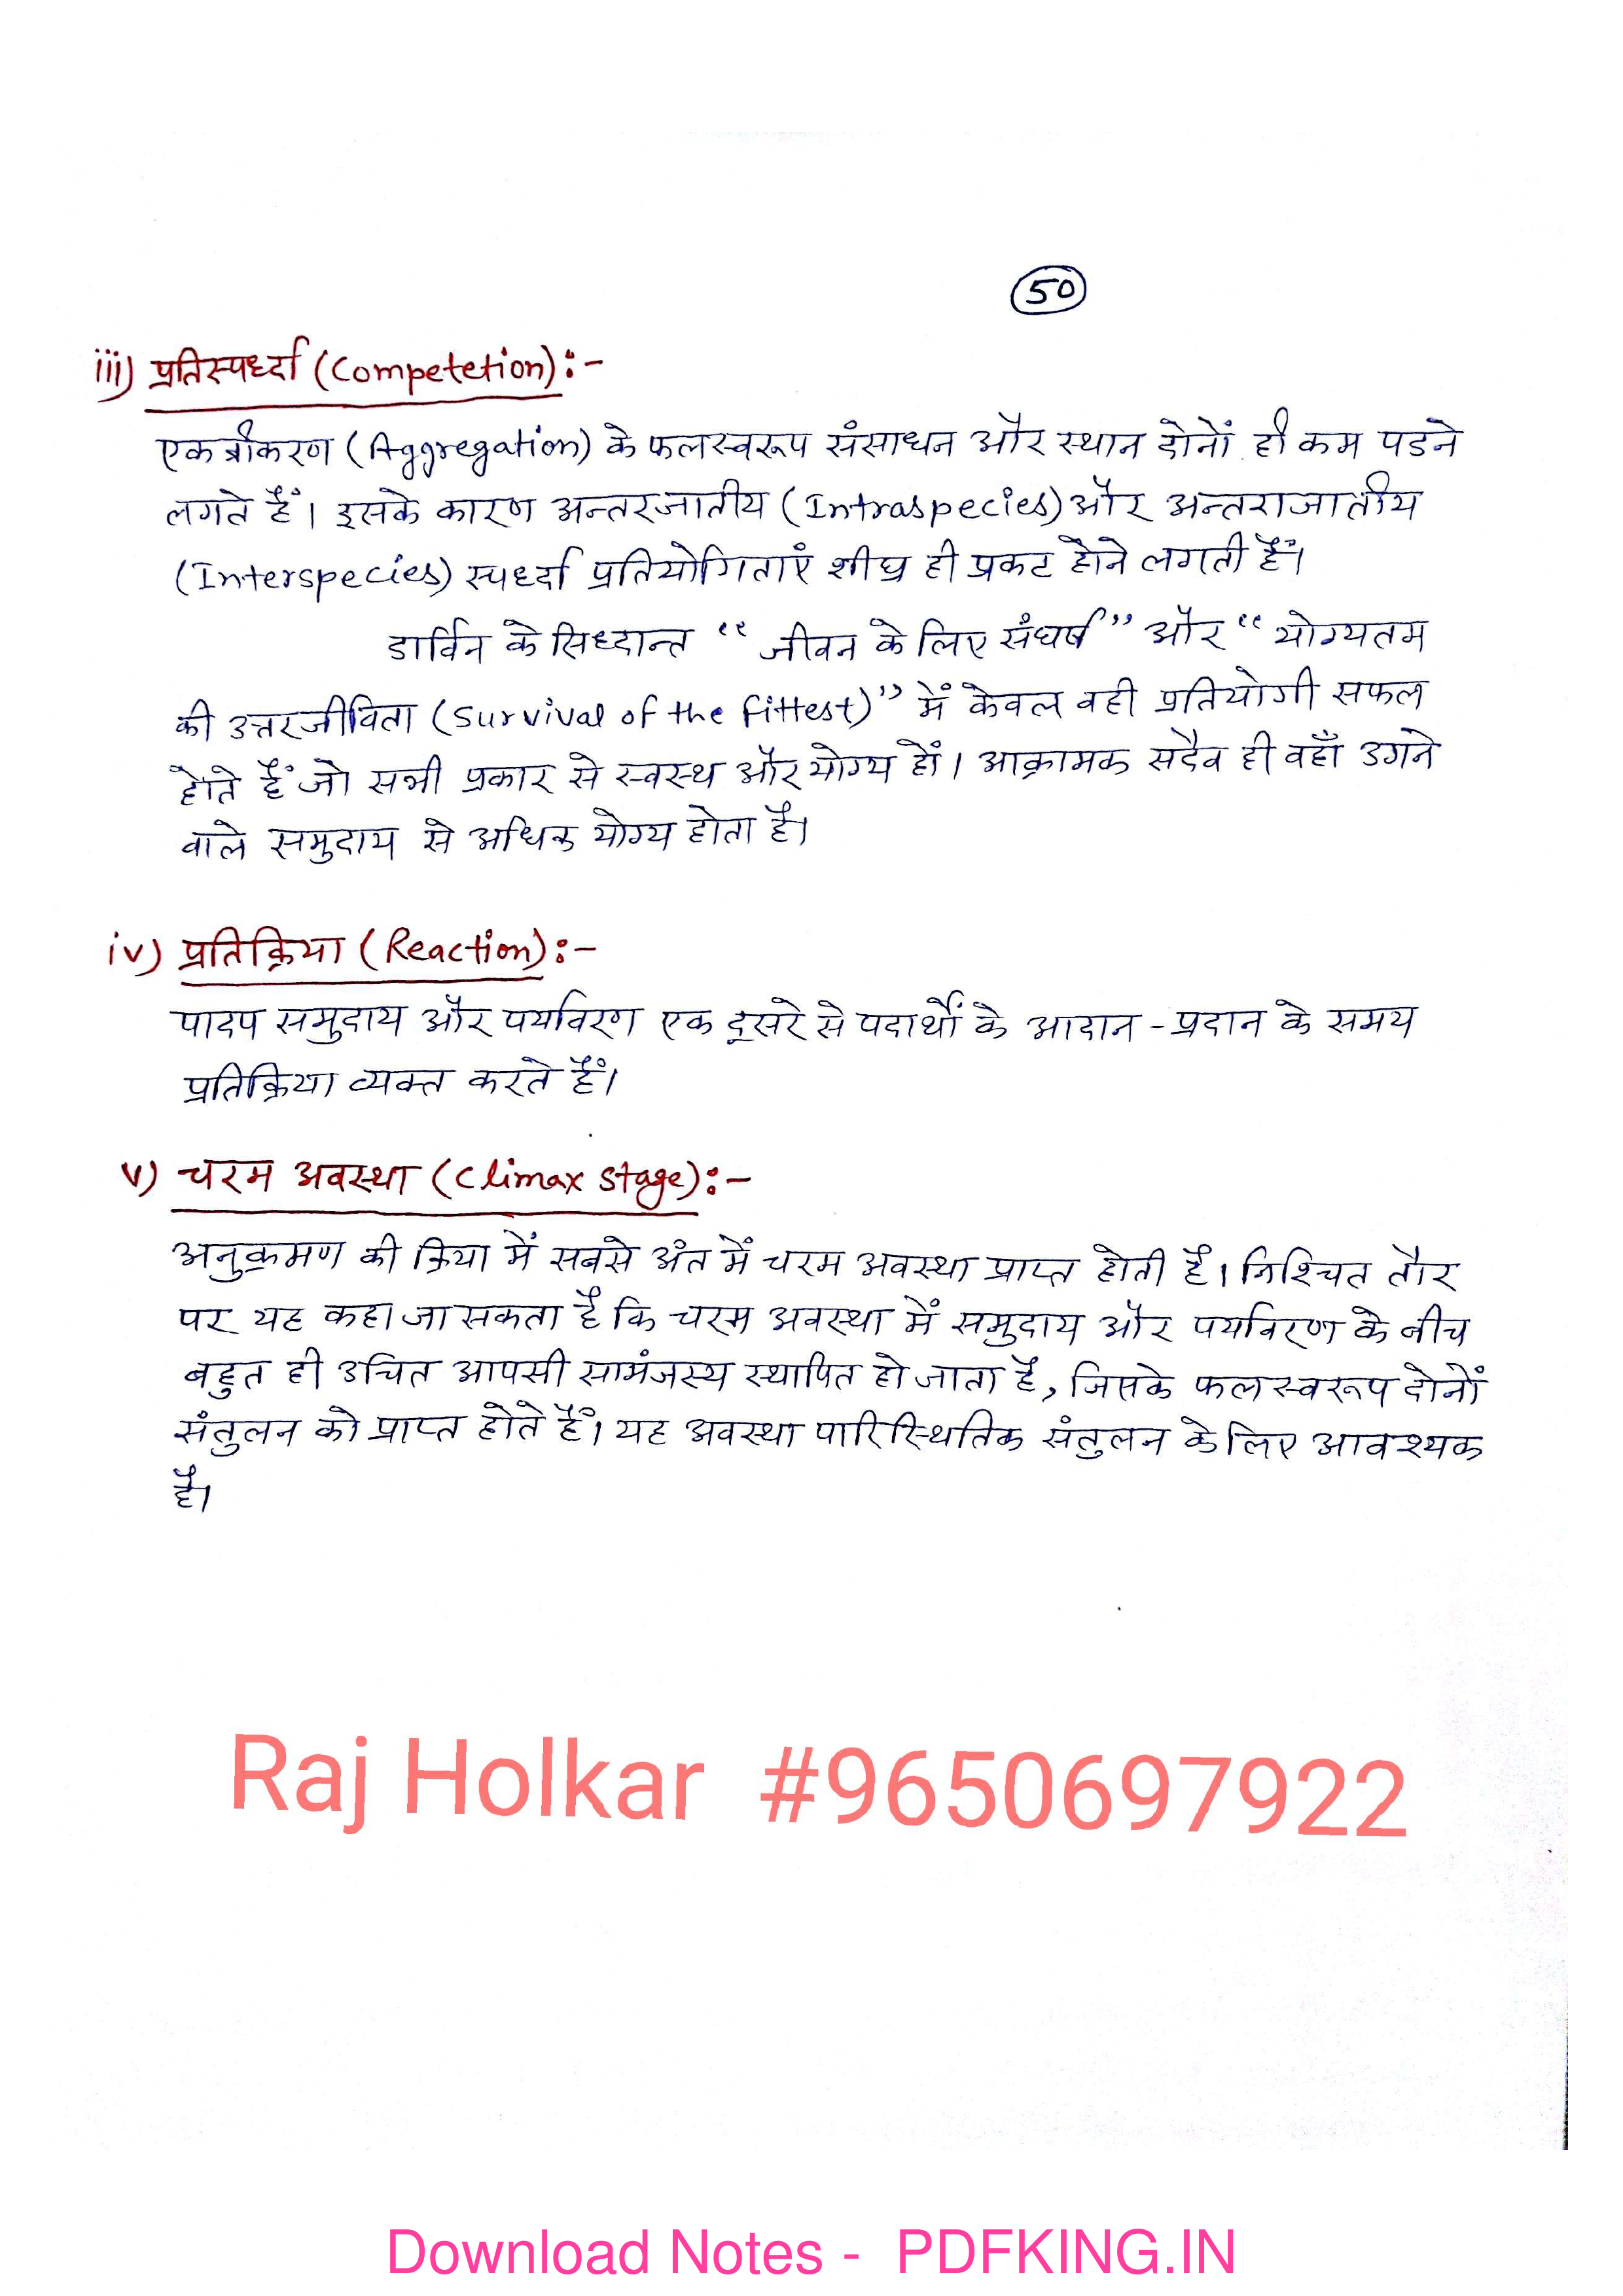 50
iii) प्रतिस्पर्ध्दा (Competetion):-
एकत्रीकरण (Aggregation) के फलस्वरूप संसाधन और स्थान दोनों ही कम पडने
लगते हैं। इसके कारण अन्तरजातीय (Intraspecies) और अन्तराजातीय
(Interspecies) स्पर्ध्दा प्रतियोगिताएं शीघ्र ही प्रकट होने लगती हैं।
डार्विन के सिध्दान्त “ जीवन के लिए संघर्ष” और “ योग्यतम
की उत्तरजीविता (Survival of the fittest)” में केवल वही प्रतियोगी सफल
होते हैं जो सभी प्रकार से स्वस्थ और योग्य हों। आक्रामक सदैव ही वहाँ उगने
वाले समुदाय से अधिक योग्य होता है।
iv) प्रतिक्रिया (Reaction):-
पादप समुदाय और पर्यावरण एक दूसरे से पदार्थों के आदान-प्रदान के समय
प्रतिक्रिया व्यक्त करते हैं।
v) चरम अवस्था (Climax stage):-
अनुक्रमण की क्रिया में सबसे अंत में चरम अवस्था प्राप्त होती है। निश्चित तौर
पर यह कहा जा सकता है कि चरम अवस्था में समुदाय और पर्यावरण के बीच
बहुत ही उचित आपसी सामंजस्य स्थापित हो जाता है, जिसके फलस्वरूप दोनों
संतुलन को प्राप्त होते हैं। यह अवस्था पारिस्थितिक संतुलन के लिए आवश्यक
है।
Raj Holkar #9650697922
Download Notes - PDFKING.IN